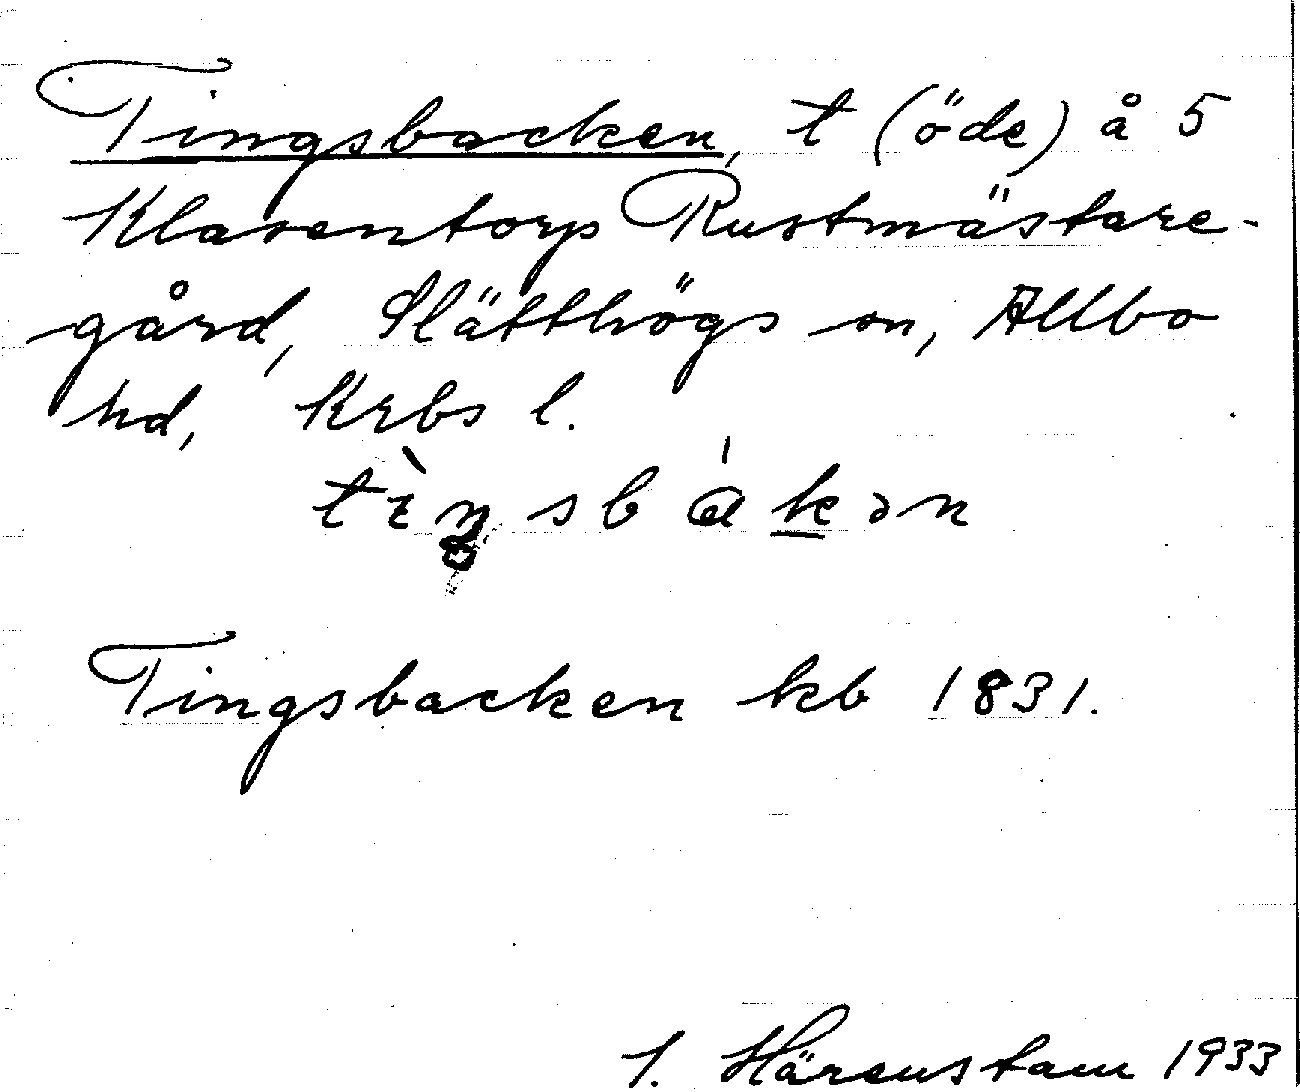 Tingsbacken, t (öde) å 5
Klasentorps Rustmästare-
gård, Slätthögs sn, Allbo
hd, Krbs l.
tìŋsbákən
Tingsbacken kb 1831.
Härenstam 1933